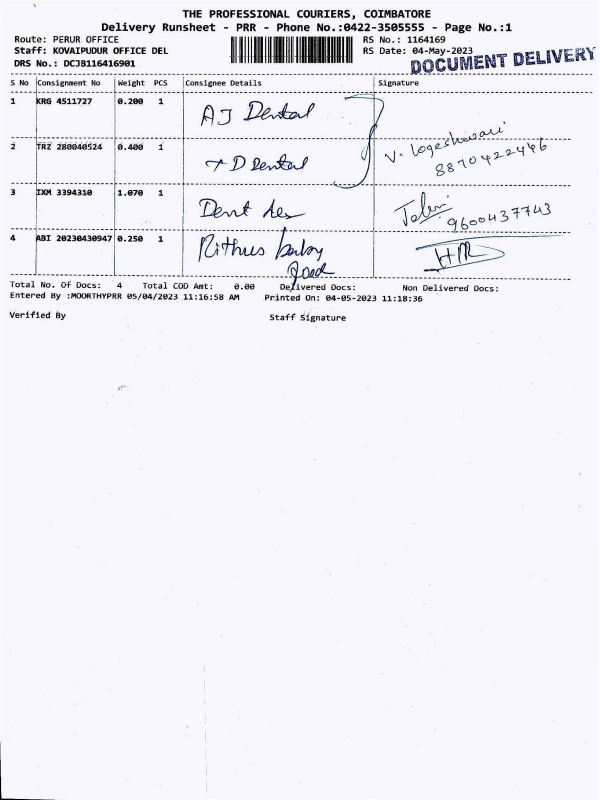 THE PROFESSIONAL COURIERS, COIMBATORE
Delivery Runsheet - PRR - Phone No.:0422-3505555 - Page No.:1
Route: PERUR OFFICE RS No.: 1164169
Staff: KOVAIPUDUR OFFICE DEL RS Date: 04-May-2023
DOCUMENT DELIVERY
DRS No.: DCJB116416901
S No Consignment No Weight PCS Consignee Details Signature
1 KRG 4511727 0.200 1 AJ Dental
2 TRZ 280040524 0.400 1 D Dental V. Logeshwari
8870422446
3 IXM 3394310 1.070 1 Dent
9600437743
4 ABI 20230430947 0.250 1 Rithus
Total No. Of Docs: 4 Total COD Amt: 0.00 Delivered Docs: Non Delivered Docs:
Entered By :MOORTHYPRR 05/04/2023 11:16:58 AM Printed On: 04-05-2023 11:18:36
Verified By Staff Signature